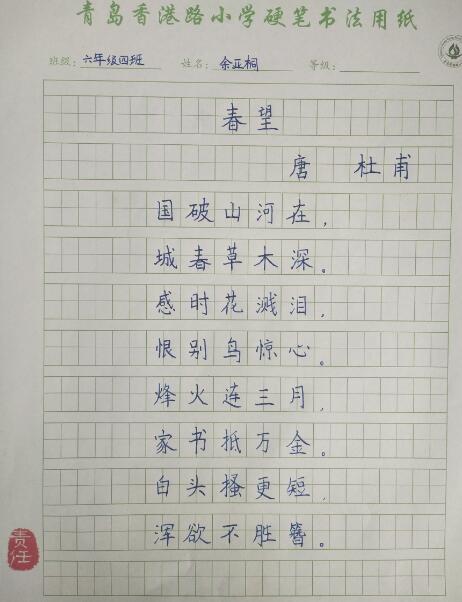 青岛香港路小学硬笔书法用纸
班级：六年级四班 姓名：余亚桐 等级：
春望
唐 杜甫
国破山河在，
城春草木深。
感时花溅泪，
恨别鸟惊心。
烽火连三月，
家书抵万金。
白头搔更短，
浑欲不胜簪。
责任